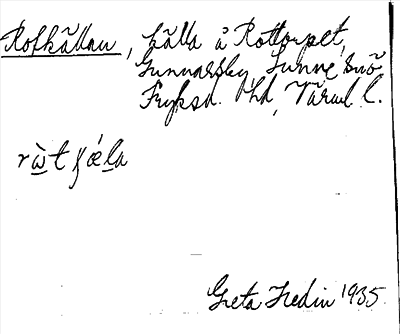 Rotkällan, källa å Rottorpet,
Gunnarsby Sunne snö
Fryksd. hd, Värml l.
rὼt ʂǽla
Greta Hedin 1935.